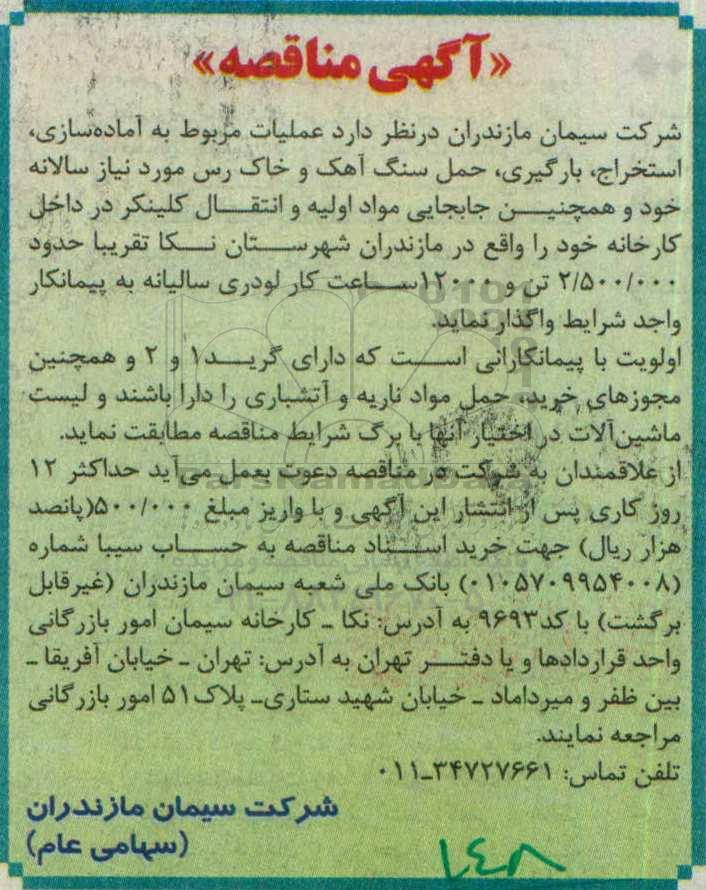 «آگهی مناقصه»
شرکت سیمان مازندران درنظر دارد عملیات مربوط به آماده‌سازی،
استخراج، بارگیری، حمل سنگ آهک و خاک رس مورد نیاز سالانه
خود و همچنین جابجایی مواد اولیه و انتقال کلینکر در داخل
کارخانه خود را واقع در مازندران شهرستان نکا تقریبا حدود
۲/۵۰۰/۰۰۰ تن و ۱۲۰۰۰ ساعت کار لودری سالیانه به پیمانکار
واجد شرایط واگذار نماید.
اولویت با پیمانکارانی است که دارای گرید۱ و ۲ و همچنین
مجوزهای خرید، حمل مواد ناریه و آتشباری را دارا باشند و لیست
ماشین‌آلات در اختیار آنها با برگ شرایط مناقصه مطابقت نماید.
از علاقمندان به شرکت در مناقصه دعوت بعمل می‌آید حداکثر ۱۲
روز کاری پس از انتشار این آگهی و با واریز مبلغ ۵۰۰/۰۰۰(پانصد
هزار ریال) جهت خرید اسناد مناقصه به حساب سیبا شماره
(۰۱۰۵۷۰۹۹۵۴۰۰۸) بانک ملی شعبه سیمان مازندران (غیرقابل
برگشت) با کد۹۶۹۳ به آدرس: نکا ـ کارخانه سیمان امور بازرگانی
واحد قراردادها و یا دفتر تهران به آدرس: تهران ـ خیابان آفریقا ـ
بین ظفر و میرداماد ـ خیابان شهید ستاری ـ پلاک۵۱ امور بازرگانی
مراجعه نمایند.
تلفن تماس: ۳۴۷۲۷۶۶۱ـ۰۱۱
شرکت سیمان مازندران
(سهامی عام)
۱۴۰۸